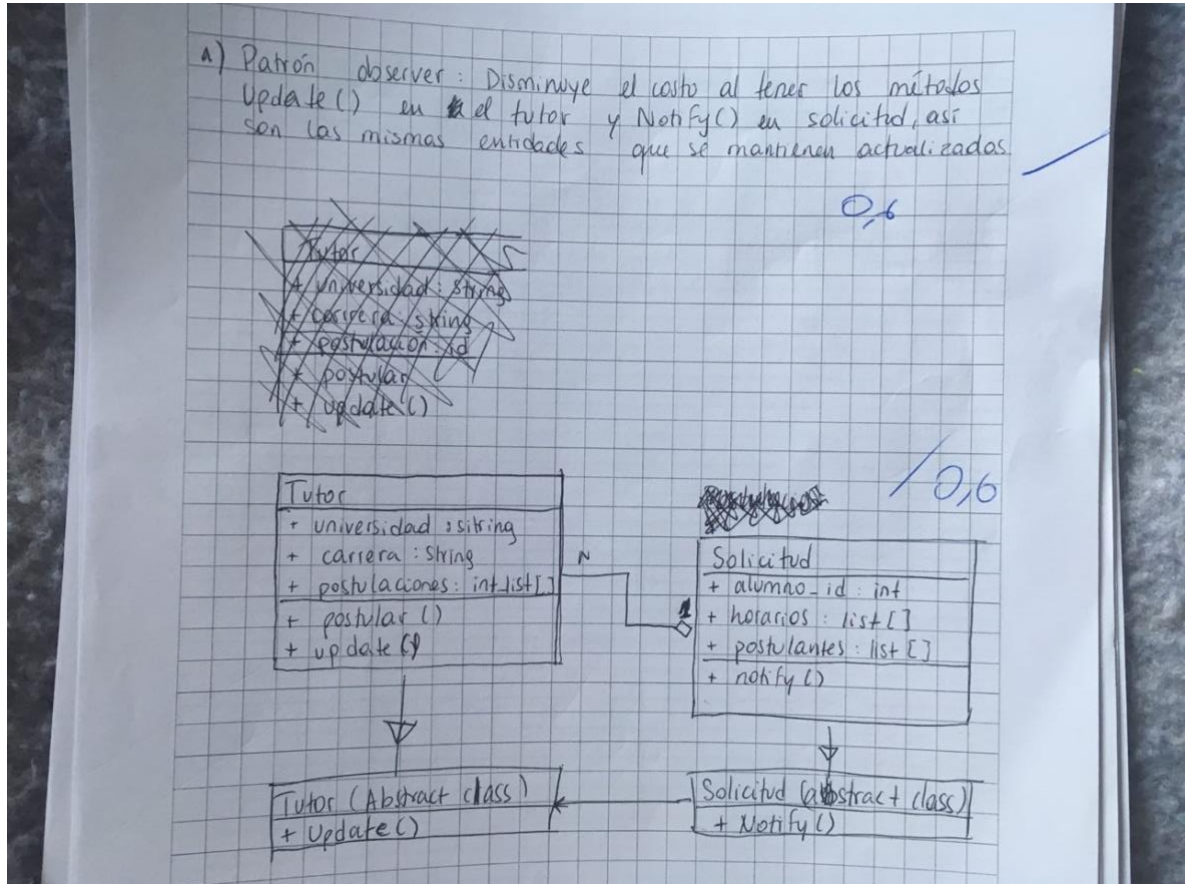 A) Patrón observer: Disminuye el costo al tener los métodos
Update() en el tutor y Notify() en solicitud, así
son las mismas entidades que se mantienen actualizadas
0,6
Tutor
+ universidad: string
+ carrera: string
+ postulación: id
+ postular
+ update()
/0,6
Tutor
+ universidad : sitring
+ carrera : string
+ postulaciones: int list[]
+ postular ()
+ update()
N
1
Solicitud
+ alumno_id : int
+ horarios : list[]
+ postulantes : list[]
+ notify()
Tutor (Abstract class)
+ Update()
Solicitud (abstract class)
+ Notify()